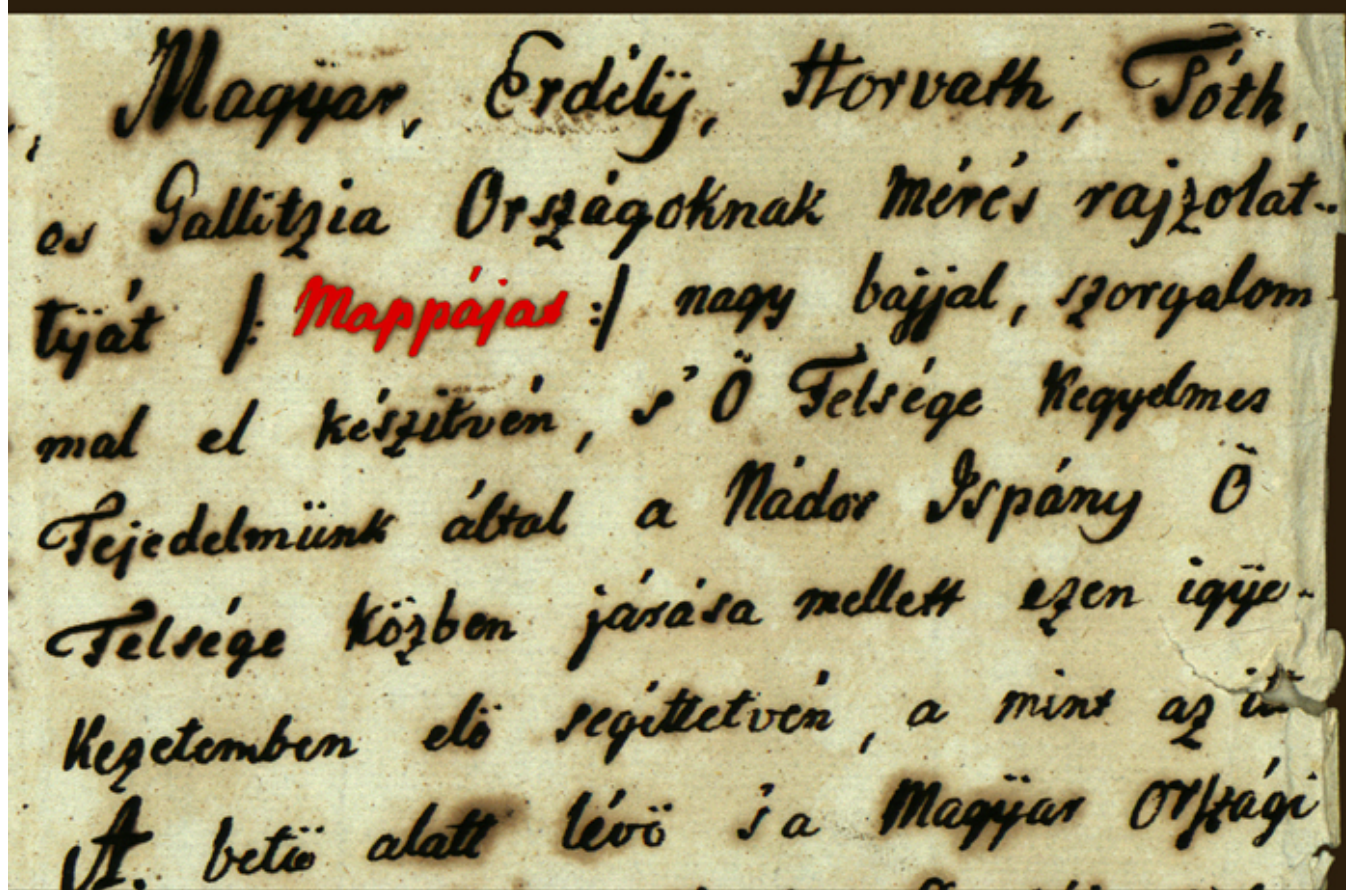 Magyar, Erdélÿ, Horvath, Tóth,
es Gallitzia Országoknak mérés rajzolat-
tÿát /: Mappáját :/ nagy bajjal, szorgalom
mal el készitvén, s' Ö Felsége Kegyelmes
Fejedelmünk által a Nádor Ispány Ö
Felsége közben járása mellett ezen igÿe-
kezetemben elö segittetvén, a mint az
A. betü alatt lévö 's a Magÿar Országi